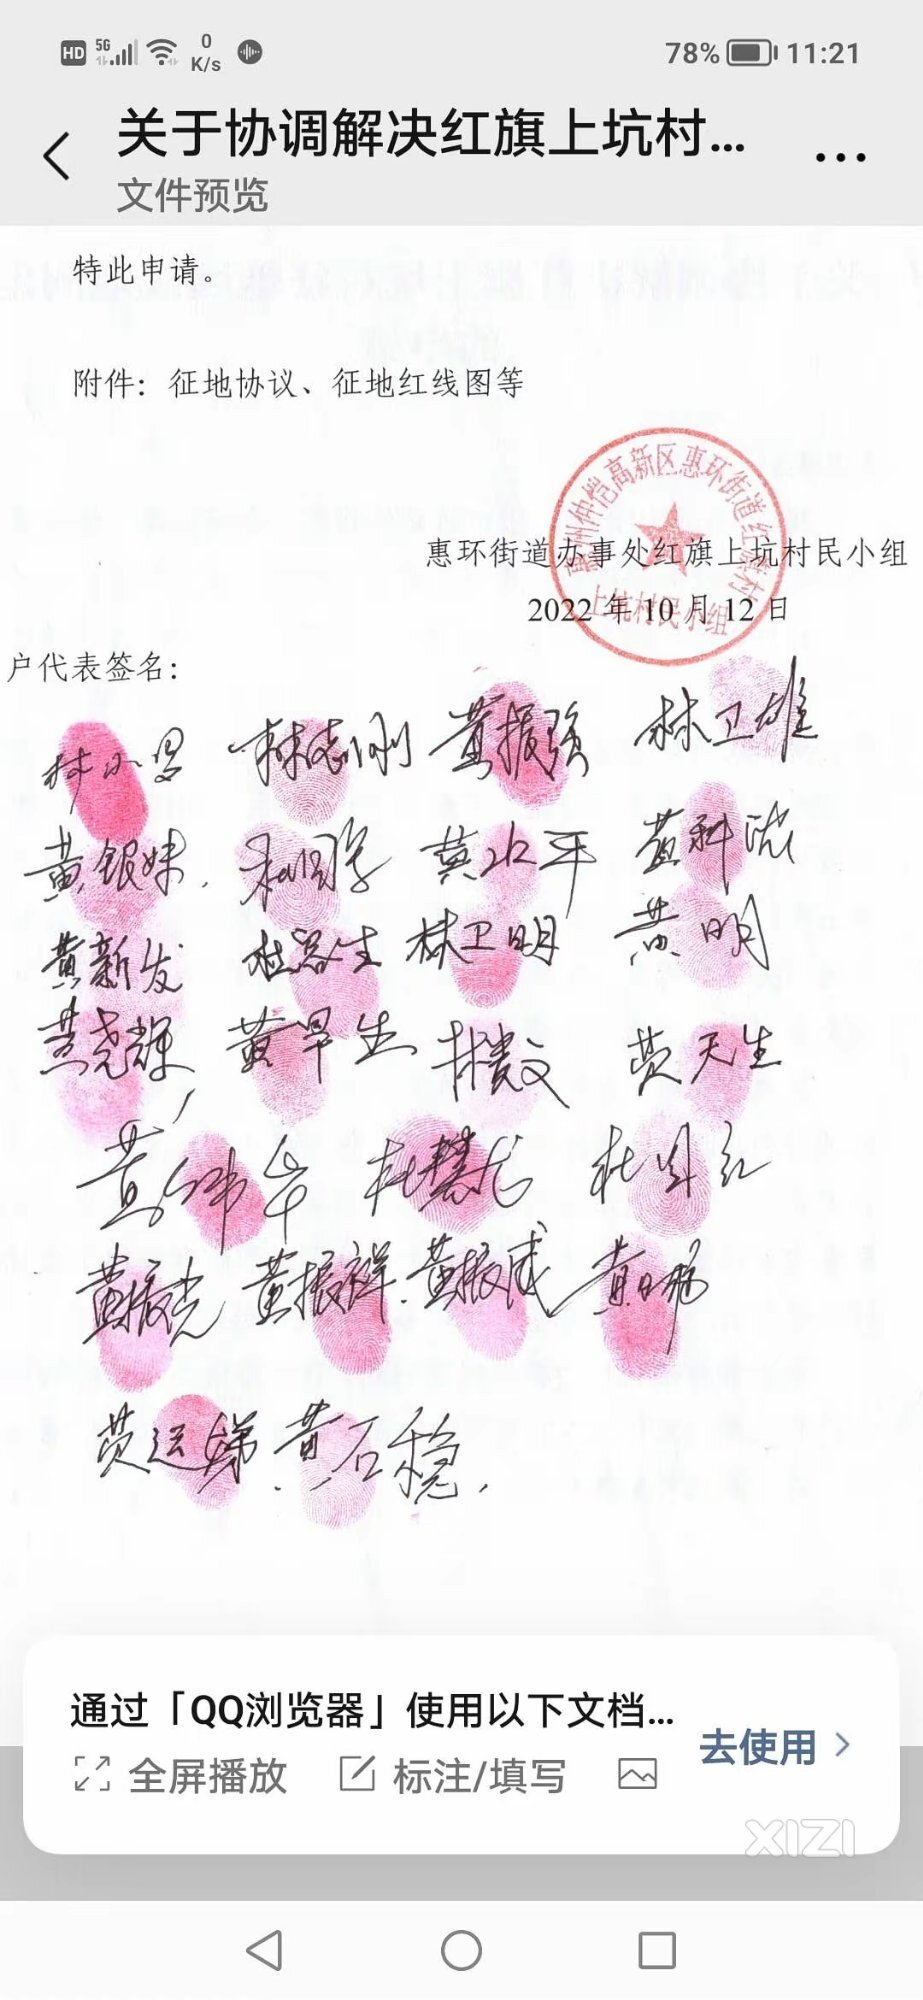 HD 5G 0 K/s 78% 11:21
关于协调解决红旗上坑村...
文件预览
特此申请。
附件：征地协议、征地红线图等
惠州仲恺高新区惠环街道红旗村
上坑村民小组
惠环街道办事处红旗上坑村民小组
2022 年 10 月 12 日
户代表签名：
林志刚 黄振强 林卫雄
黄银妹 黄水平
黄新发 林卫明 黄明
黄尧辉 黄早生 黄天生
黄伟华 杜慧龙
黄振光 黄振祥 黄振威
黄运娣 黄石稳
通过「QQ浏览器」使用以下文档...
去使用
全屏播放 标注/填写
XIZI